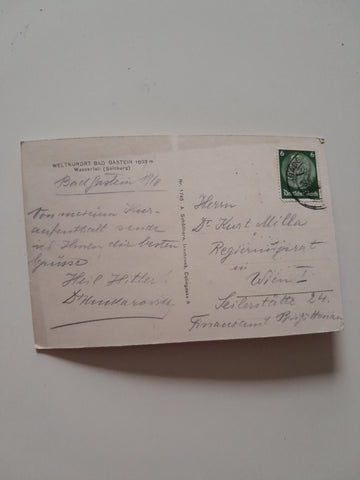 WELTKURORT BAD GASTEIN 1083 m
Wasserfall (Salzburg)
Bad Gastein
Von meinem Kur-
aufenthalt sende
ich Ihnen die besten
Grüsse
Heil Hitler!
Nr. 1745 A. Innsbruck,
6 6
Herrn
Dr. Kurt Milla
Regierungsrat
in
Wien I
Seilerstätte 24.
Finanzamt